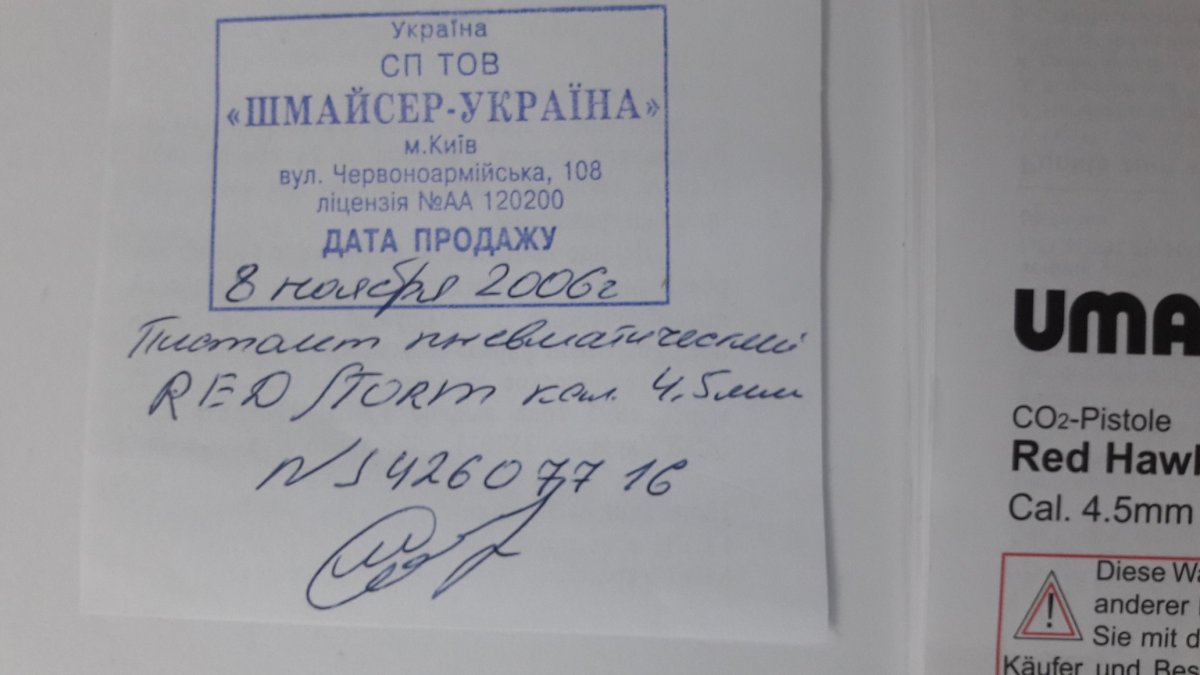 Україна
СП ТОВ
«ШМАЙСЕР-УКРАЇНА»
м.Київ
вул. Червоноармійська, 108
ліцензія №АА 120200
ДАТА ПРОДАЖУ
8 ноября 2006г
Пистолет пневматический
RED STORM кал. 4.5мм
N J42607716
UMA
CO2-Pistole
Red Hawk
Cal. 4.5mm
Diese Wa
anderer
Sie mit d
Käufer und Bes